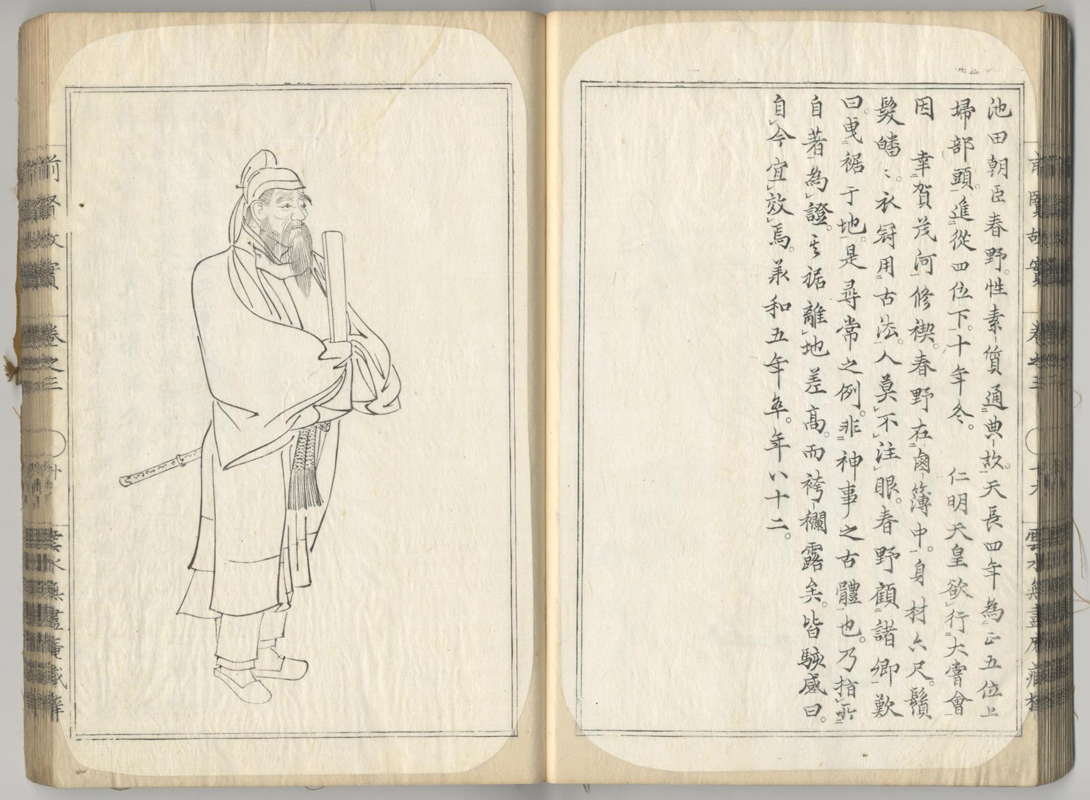 池田朝臣春野。性素質通典故。天長四年為正五位上
掃部頭。進從四位下。十年冬。　仁明天皇欲行大嘗會
因　幸賀茂河修禊。春野在鹵簿中。身材六尺。鬚
髮皤〻。衣冠用古法。人莫不注眼。春野顧諸卿歎
曰。曳裾于地。是尋常之例。非神事之古體也。乃指所
自著為證。其裾離地差高。而袴襴露矣。皆駭感曰。
自今宜效焉。羕和五年卒。年八十二。
前賢故實　卷之三
雲水無盡庵藏